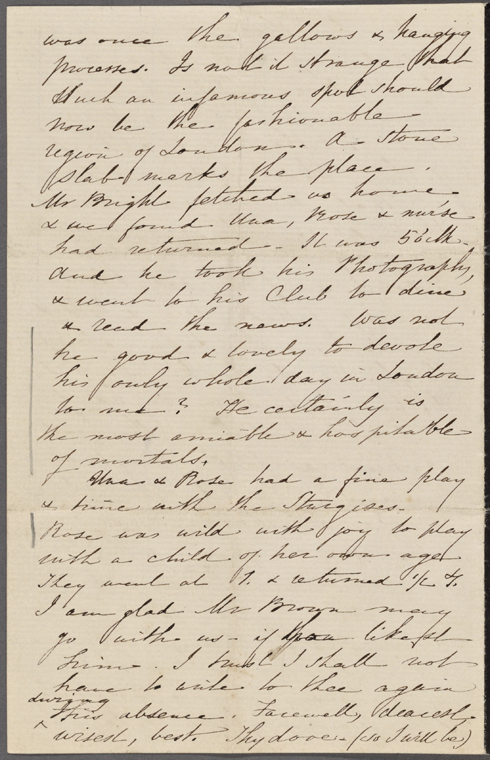 was once the gallows & hanging
processes. Is not it strange that
such an infamous spot should
now be the fashionable
region of London. A stone
slab marks the place.
Mr Bright fetched us home
& we found Una, Rose & nurse
had returned - It was 5 o'clk.
and he took his Photographs,
& went to his Club to dine
& read the news. Was not
he good & lovely to devote
his only whole day in London
to me? He certainly is
the most amiable & hospitable
of mortals.
Una & Rose had a fine play
& time with the Sturgises.
Rose was wild with joy to play
with a child of her own age
They went at 1. & returned 1/2 4.
I am glad Mr Brown may
go with us - if thou likest
him. I trust I shall not
have to write to thee again
during
this absence. Farewell, dearest,
wisest, best Thy dove - (so I will be)